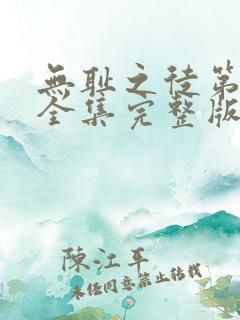 無耻之徒第
全集完整版
陳江平
未经同意禁止转载